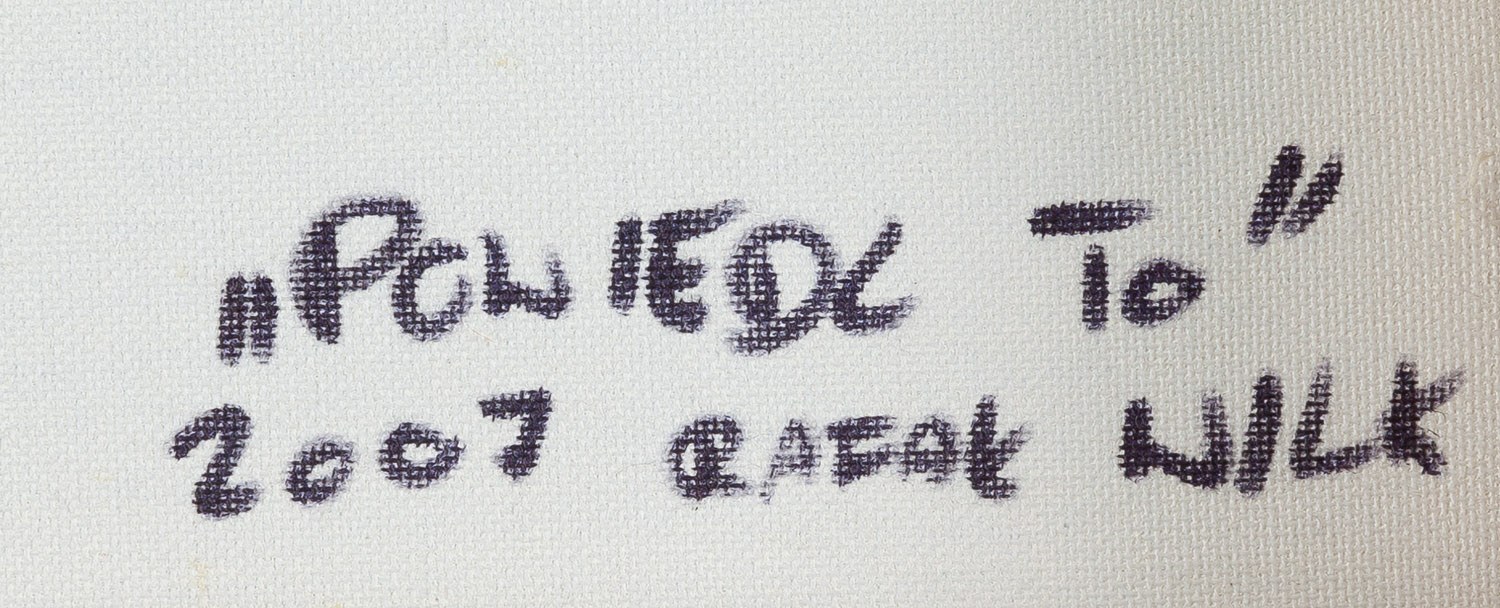 „POWIEDZ TO”
2007 RAFAŁ WILK